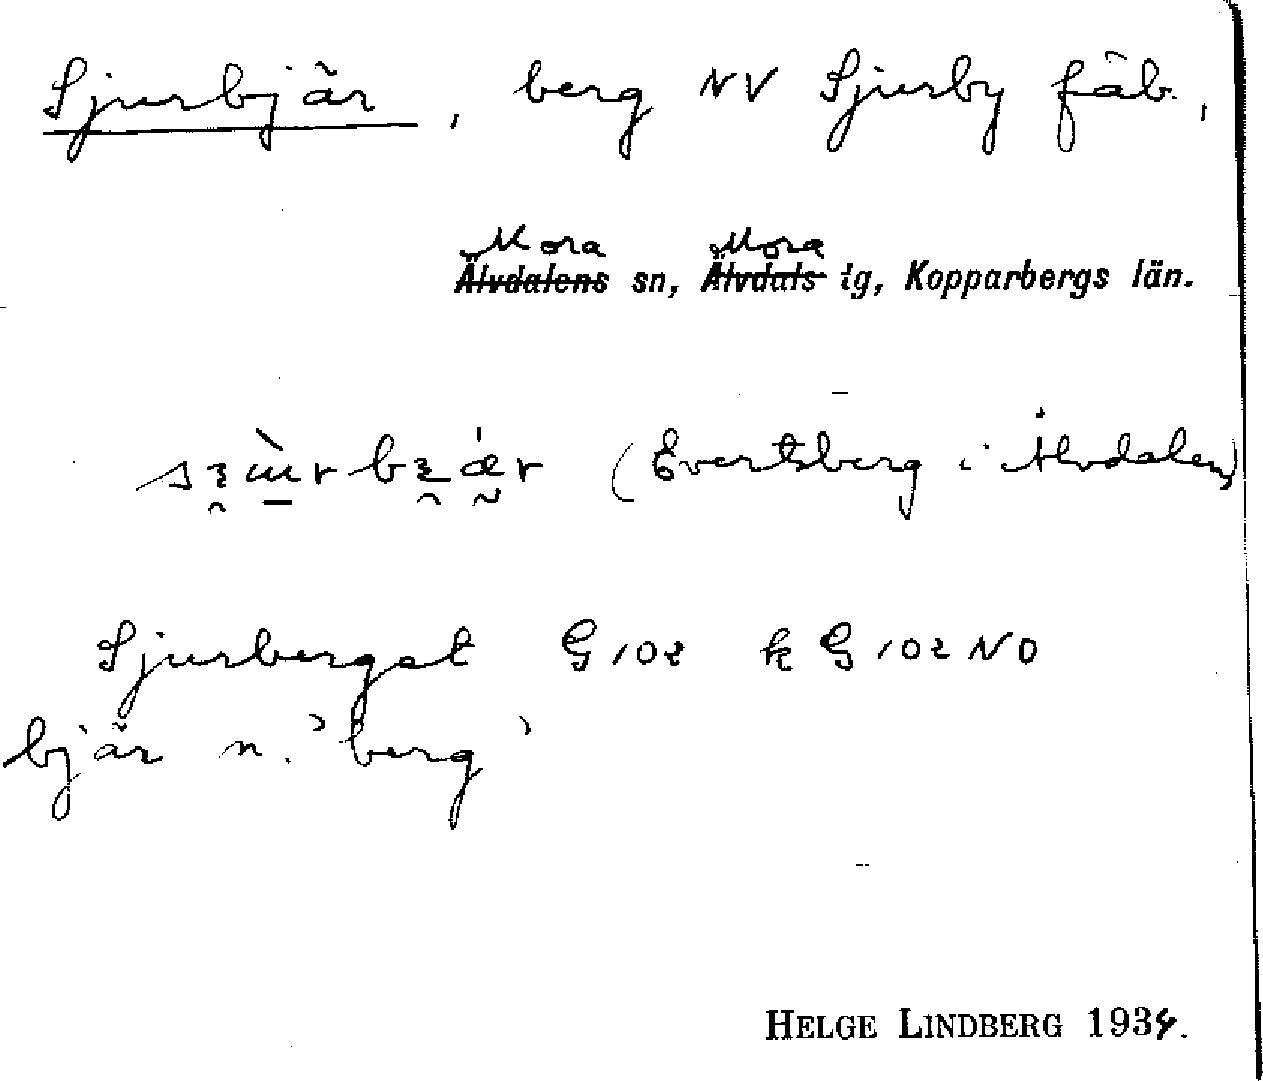 Sjurbjär, berg NV Sjurby fäb.,
Mora Mora
Älvdalens sn, Älvdals tg, Kopparbergs län.
(Evertsberg i Älvdalen)
Sjurberget G 102 k G 102 NO
bjär n. 'berg'
HELGE LINDBERG 1934.